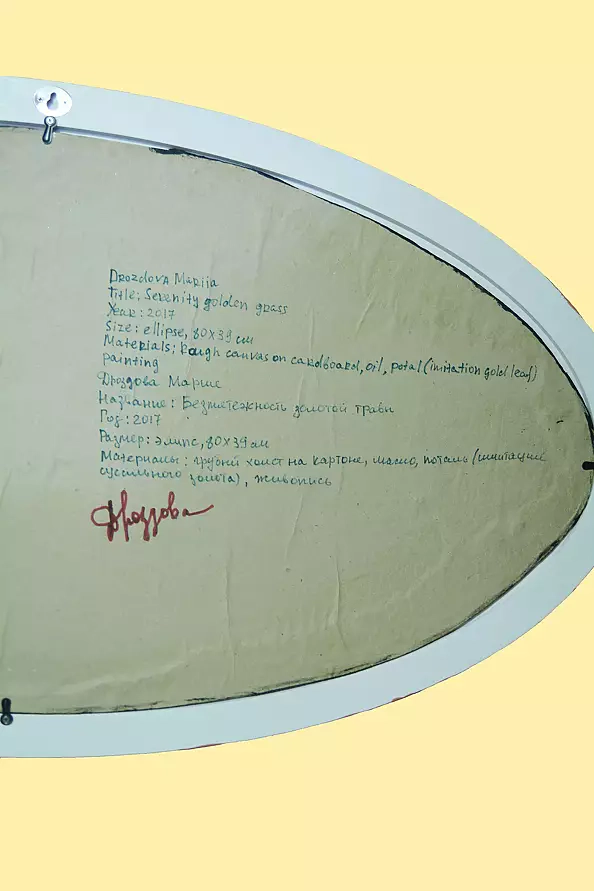 Drozdova Mariia
Title: Serenity golden grass
Year: 2017
Size: ellipse, 80x39 см
Materials: Rough canvas on cardboard, oil, potal (imitation gold leaf)
painting
Дроздова Марие
Название: Безмятежность золотой травы
Год: 2017
Размер: элипс, 80x39 см
Материалы: грубый холст на картоне, масло, поталь (имитация
сусального золота), живопись
Дроздова